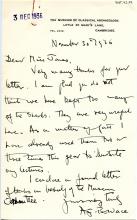 3 DEC 1936
THE MUSEUM OF CLASSICAL ARCHAEOLOGY,
LITTLE ST MARY'S LANE,
CAMBRIDGE.
November 30th 1936
Dear Miss
Very many thanks for your
letter. I am glad you do not
think we have kept too many
of the sherds. They are very useful
here. As a matter of fact I
have already used them two or
three times this year to illustrate
my lectures.
I enclose a formal letter
of thanks on behalf of the Museum
Committee.
Yours truly